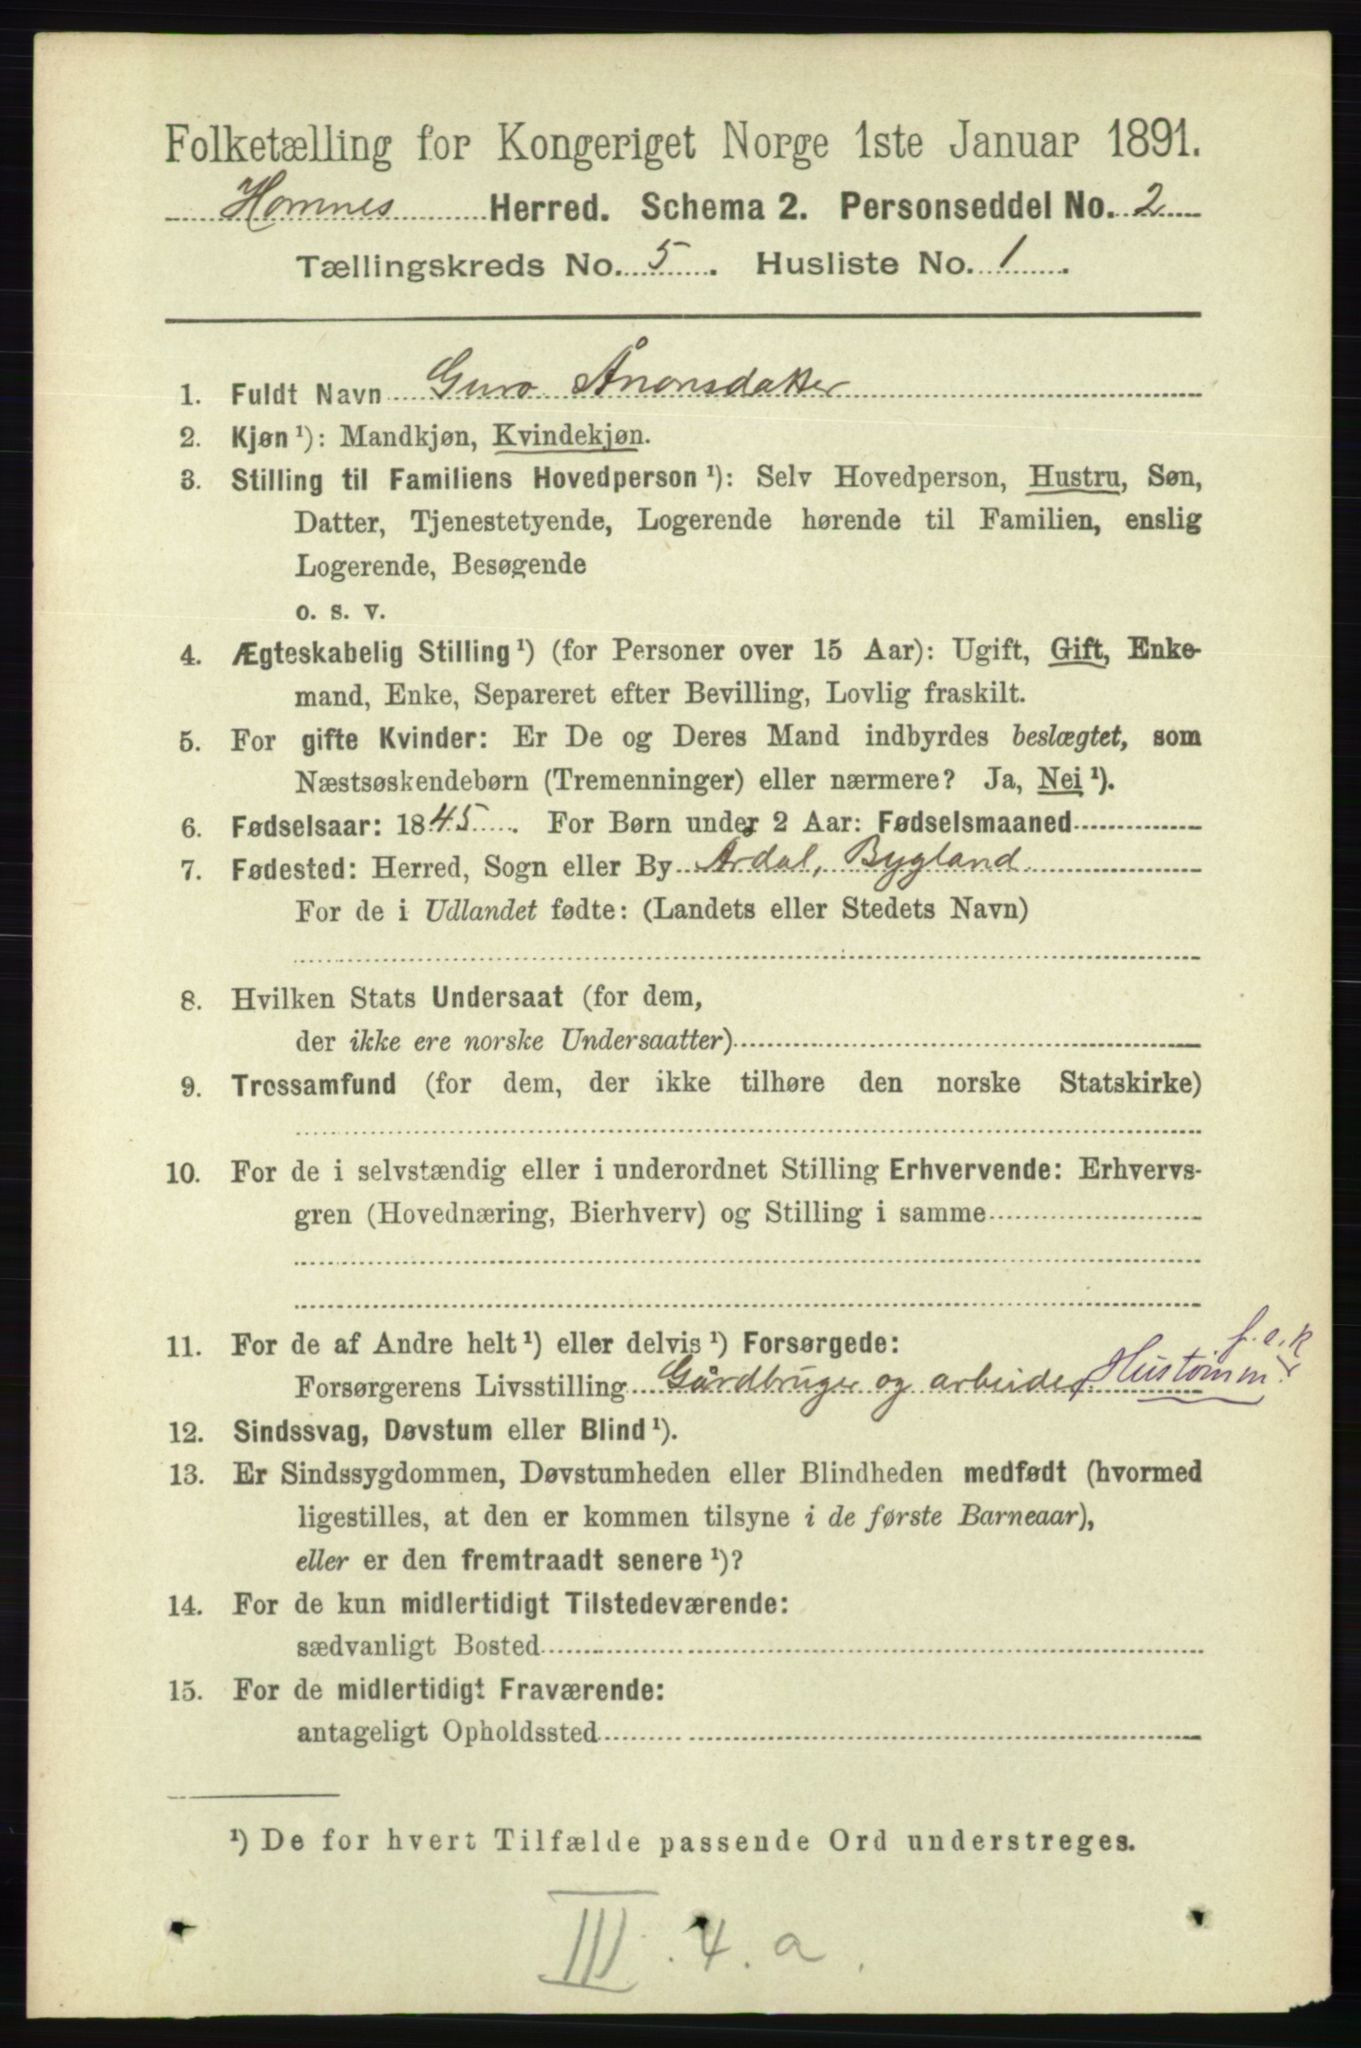 Folketælling for Kongeriget Norge 1ste Januar 1891.
Homnes Herred. Schema 2. Personseddel No. 2
Tællingskreds No. 5. Husliste No. 1.
1. Fuldt Navn Guro Ånonsdatter
2. Kjøn ¹): Mandkjøn, Kvindekjøn.
3. Stilling til Familiens Hovedperson ¹): Selv Hovedperson, Hustru, Søn,
Datter, Tjenestetyende, Logerende hørende til Familien, enslig
Logerende, Besøgende
o. s. v.
4. Ægteskabelig Stilling ¹) (for Personer over 15 Aar): Ugift, Gift, Enke-
mand, Enke, Separeret efter Bevilling, Lovlig fraskilt.
5. For gifte Kvinder: Er De og Deres Mand indbyrdes beslægtet, som
Næstsøskendebørn (Tremenninger) eller nærmere? Ja, Nei ¹).
6. Fødselsaar: 1845. For Børn under 2 Aar: Fødselsmaaned
7. Fødested: Herred, Sogn eller By Årdal, Bygland
For de i Udlandet fødte: (Landets eller Stedets Navn)
8. Hvilken Stats Undersaat (for dem,
der ikke ere norske Undersaatter)
9. Trossamfund (for dem, der ikke tilhøre den norske Statskirke)
10. For de i selvstændig eller i underordnet Stilling Erhvervende: Erhvervs-
gren (Hovednæring, Bierhverv) og Stilling i samme
f.e.k
11. For de af Andre helt ¹) eller delvis ¹) Forsørgede:
Forsørgerens Livsstilling Gårdbruger og arbeider Hustømm
12. Sindssvag, Døvstum eller Blind ¹).
13. Er Sindssygdommen, Døvstumheden eller Blindheden medfødt (hvormed
ligestilles, at den er kommen tilsyne i de første Barneaar),
eller er den fremtraadt senere ¹)?
14. For de kun midlertidigt Tilstedeværende:
sædvanligt Bosted
15. For de midlertidigt Fraværende:
antageligt Opholdssted
¹) De for hvert Tilfælde passende Ord understreges.
III. 4. a.